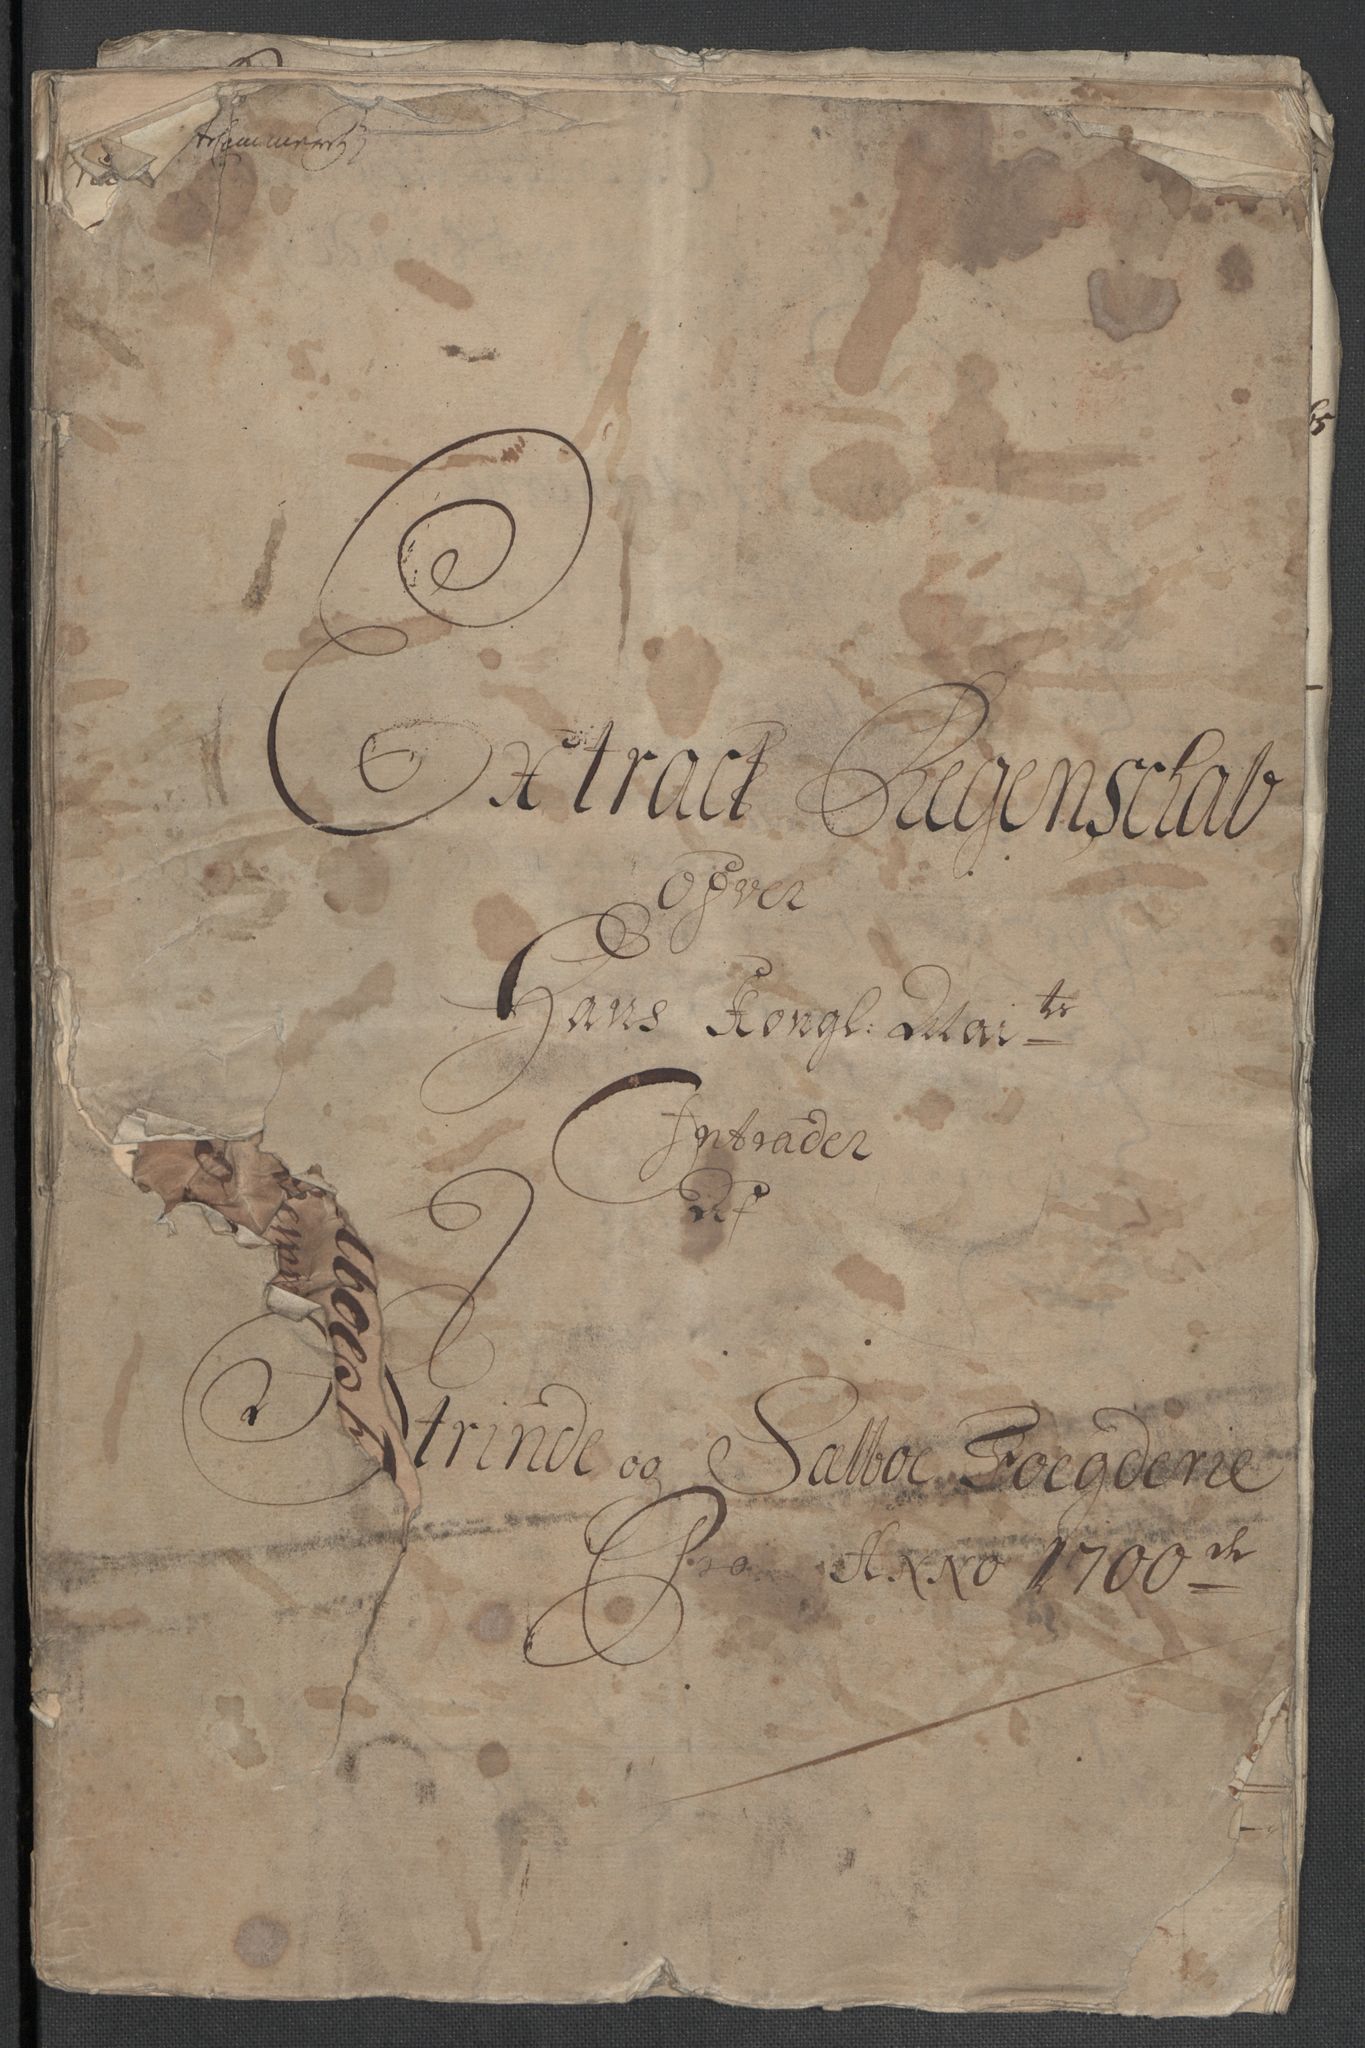 Extract Regenschab
ofver
Hans Kongl: Maits
Intrader
Af
Strinde og Sælboe Foegderie
Pro Anno 1700de